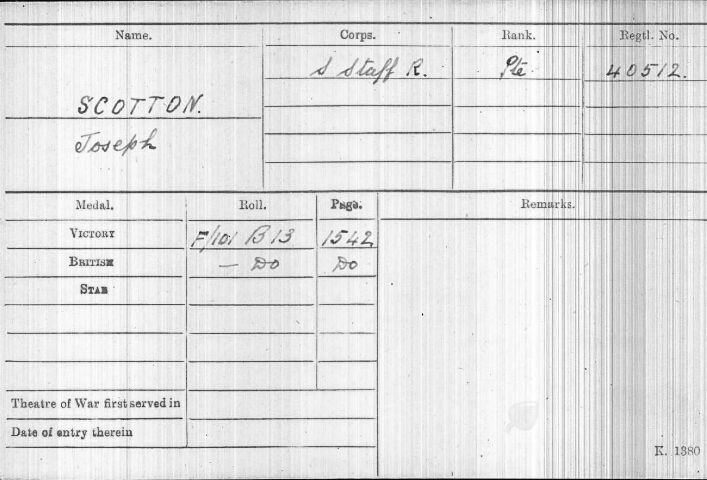 Name. Corps. Rank. Regtl. No.
S Staff R. Pte 40512.
SCOTTON.
Joseph
Medal. Roll. Page. Remarks.
VICTORY F/101 B13 1542
BRITISH — Do Do
STAR
Theatre of War first served in
Date of entry therein
K. 1380